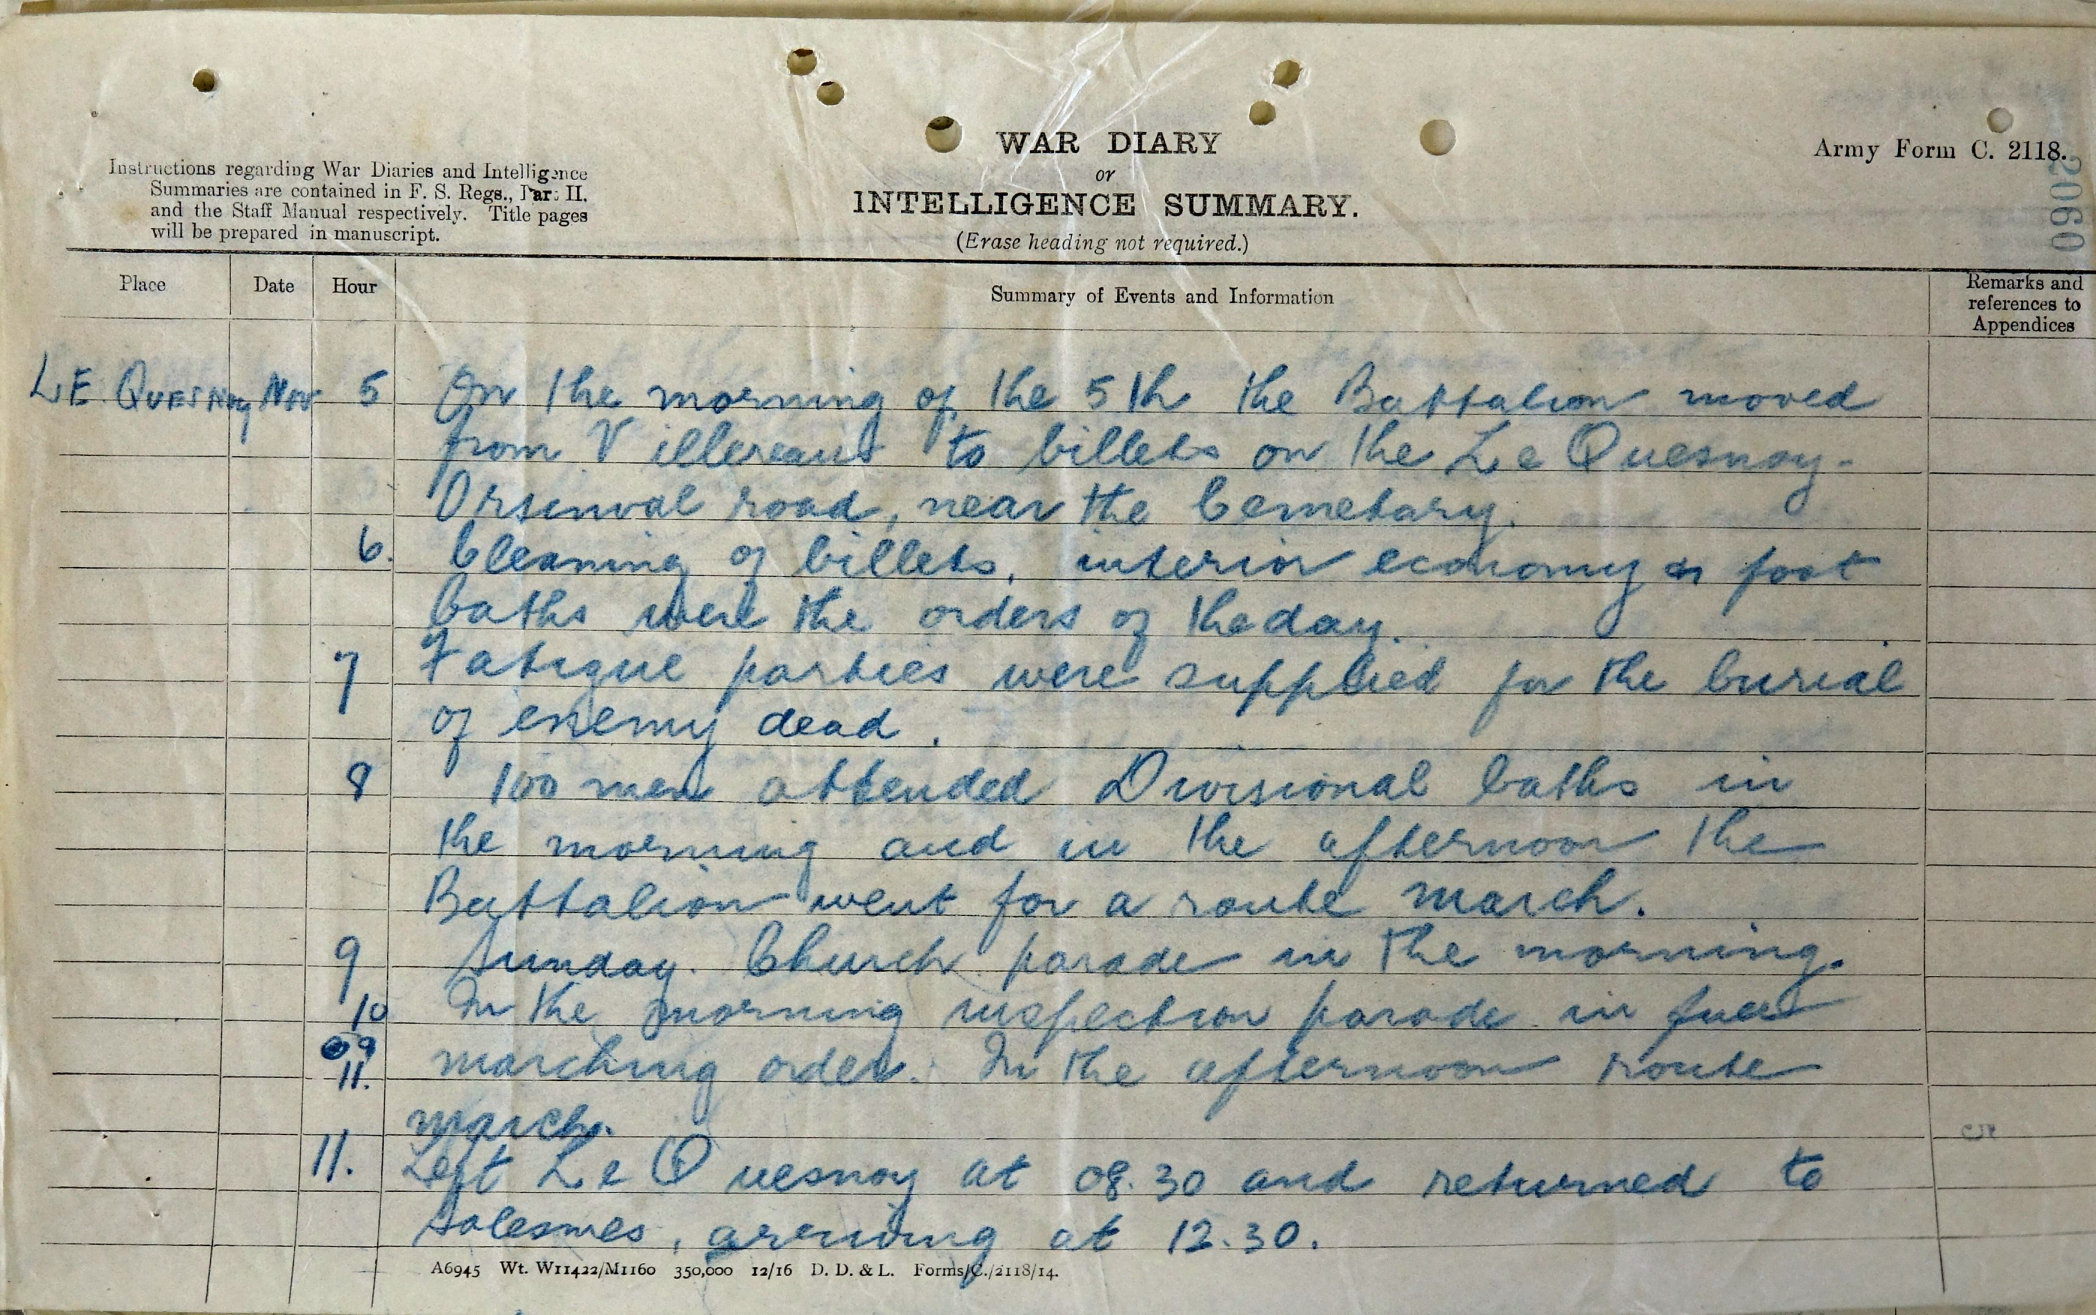 WAR DIARY
or
INTELLIGENCE SUMMARY.
(Erase heading not required.)
Army Form C. 2118.
2060
Instructions regarding War Diaries and Intelligence
Summaries are contained in F. S. Regs., Part II.
and the Staff Manual respectively. Title pages
will be prepared in manuscript.
Place Date Hour Summary of Events and Information Remarks and
references to
Appendices
LE QUESNOY Nov 5 On the morning of the 5th the Battalion moved
from Villereau to billets on the Le Quesnoy-
Orsinval road, near the Cemetary.
6. Cleaning of billets, interior economy foot
baths were the orders of the day.
7 Fatigue parties were supplied for the burial
of enemy dead.
8 100 men attended Divisional baths in
the morning and in the afternoon the
Battalion went for a route march.
9 Sunday. Church parade in the morning.
10 In the morning inspection parade in full
11. marching order. In the afternoon route
march.
11. Left Le Quesnoy at 08.30 and returned to
Solesmes, arriving at 12.30.
A6945 Wt. W11422/M1160 350,000 12/16 D. D. & L. Forms/C./2118/14.